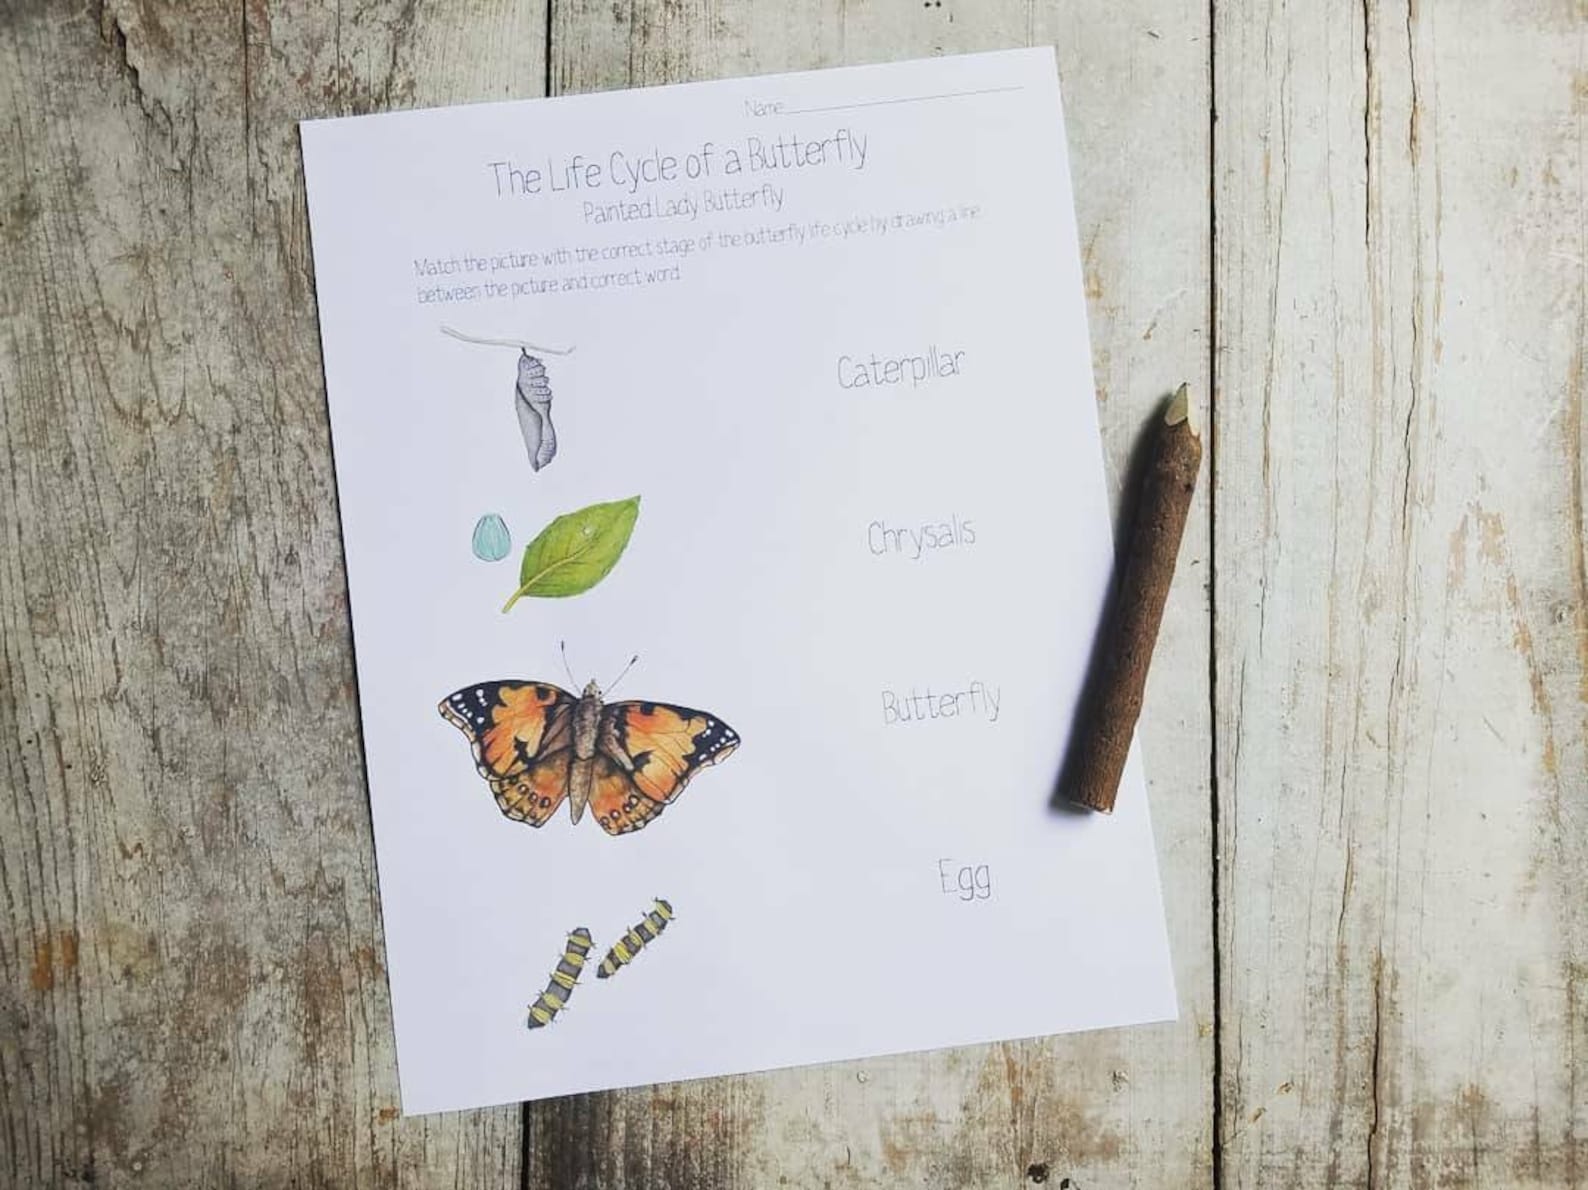 Name
The Life Cycle of a Butterfly
Painted Lady Butterfly
Match the picture with the correct stage of the butterfly life cycle by drawing a line
between the picture and correct word.
Caterpillar
Chrysalis
Butterfly
Egg